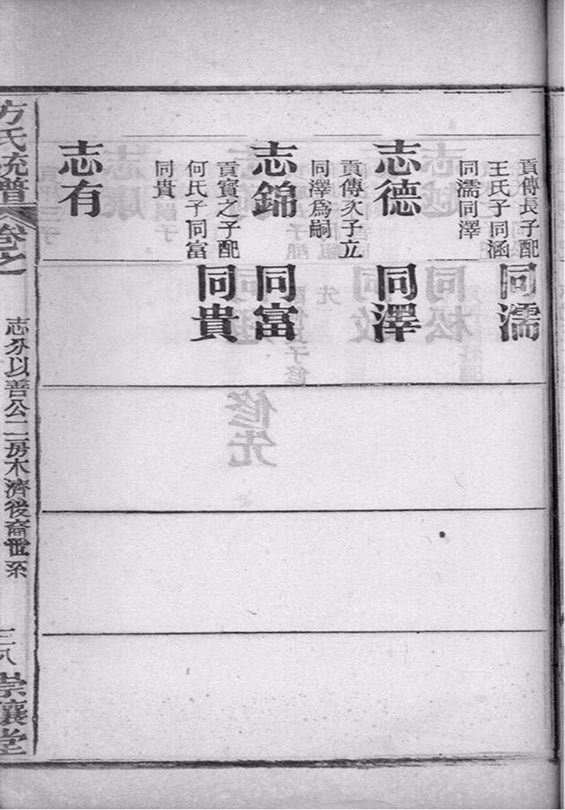 貢傳長子配
王氏子同涵
同濡同澤
同濡
志德
貢傳次子立
同澤爲嗣
同澤
志錦
貢賓之子配
何氏子同富
同貴
同富
同貴
志有
方氏統譜
卷之
志分以善公二房木濟後裔世系
三八
崇讓堂